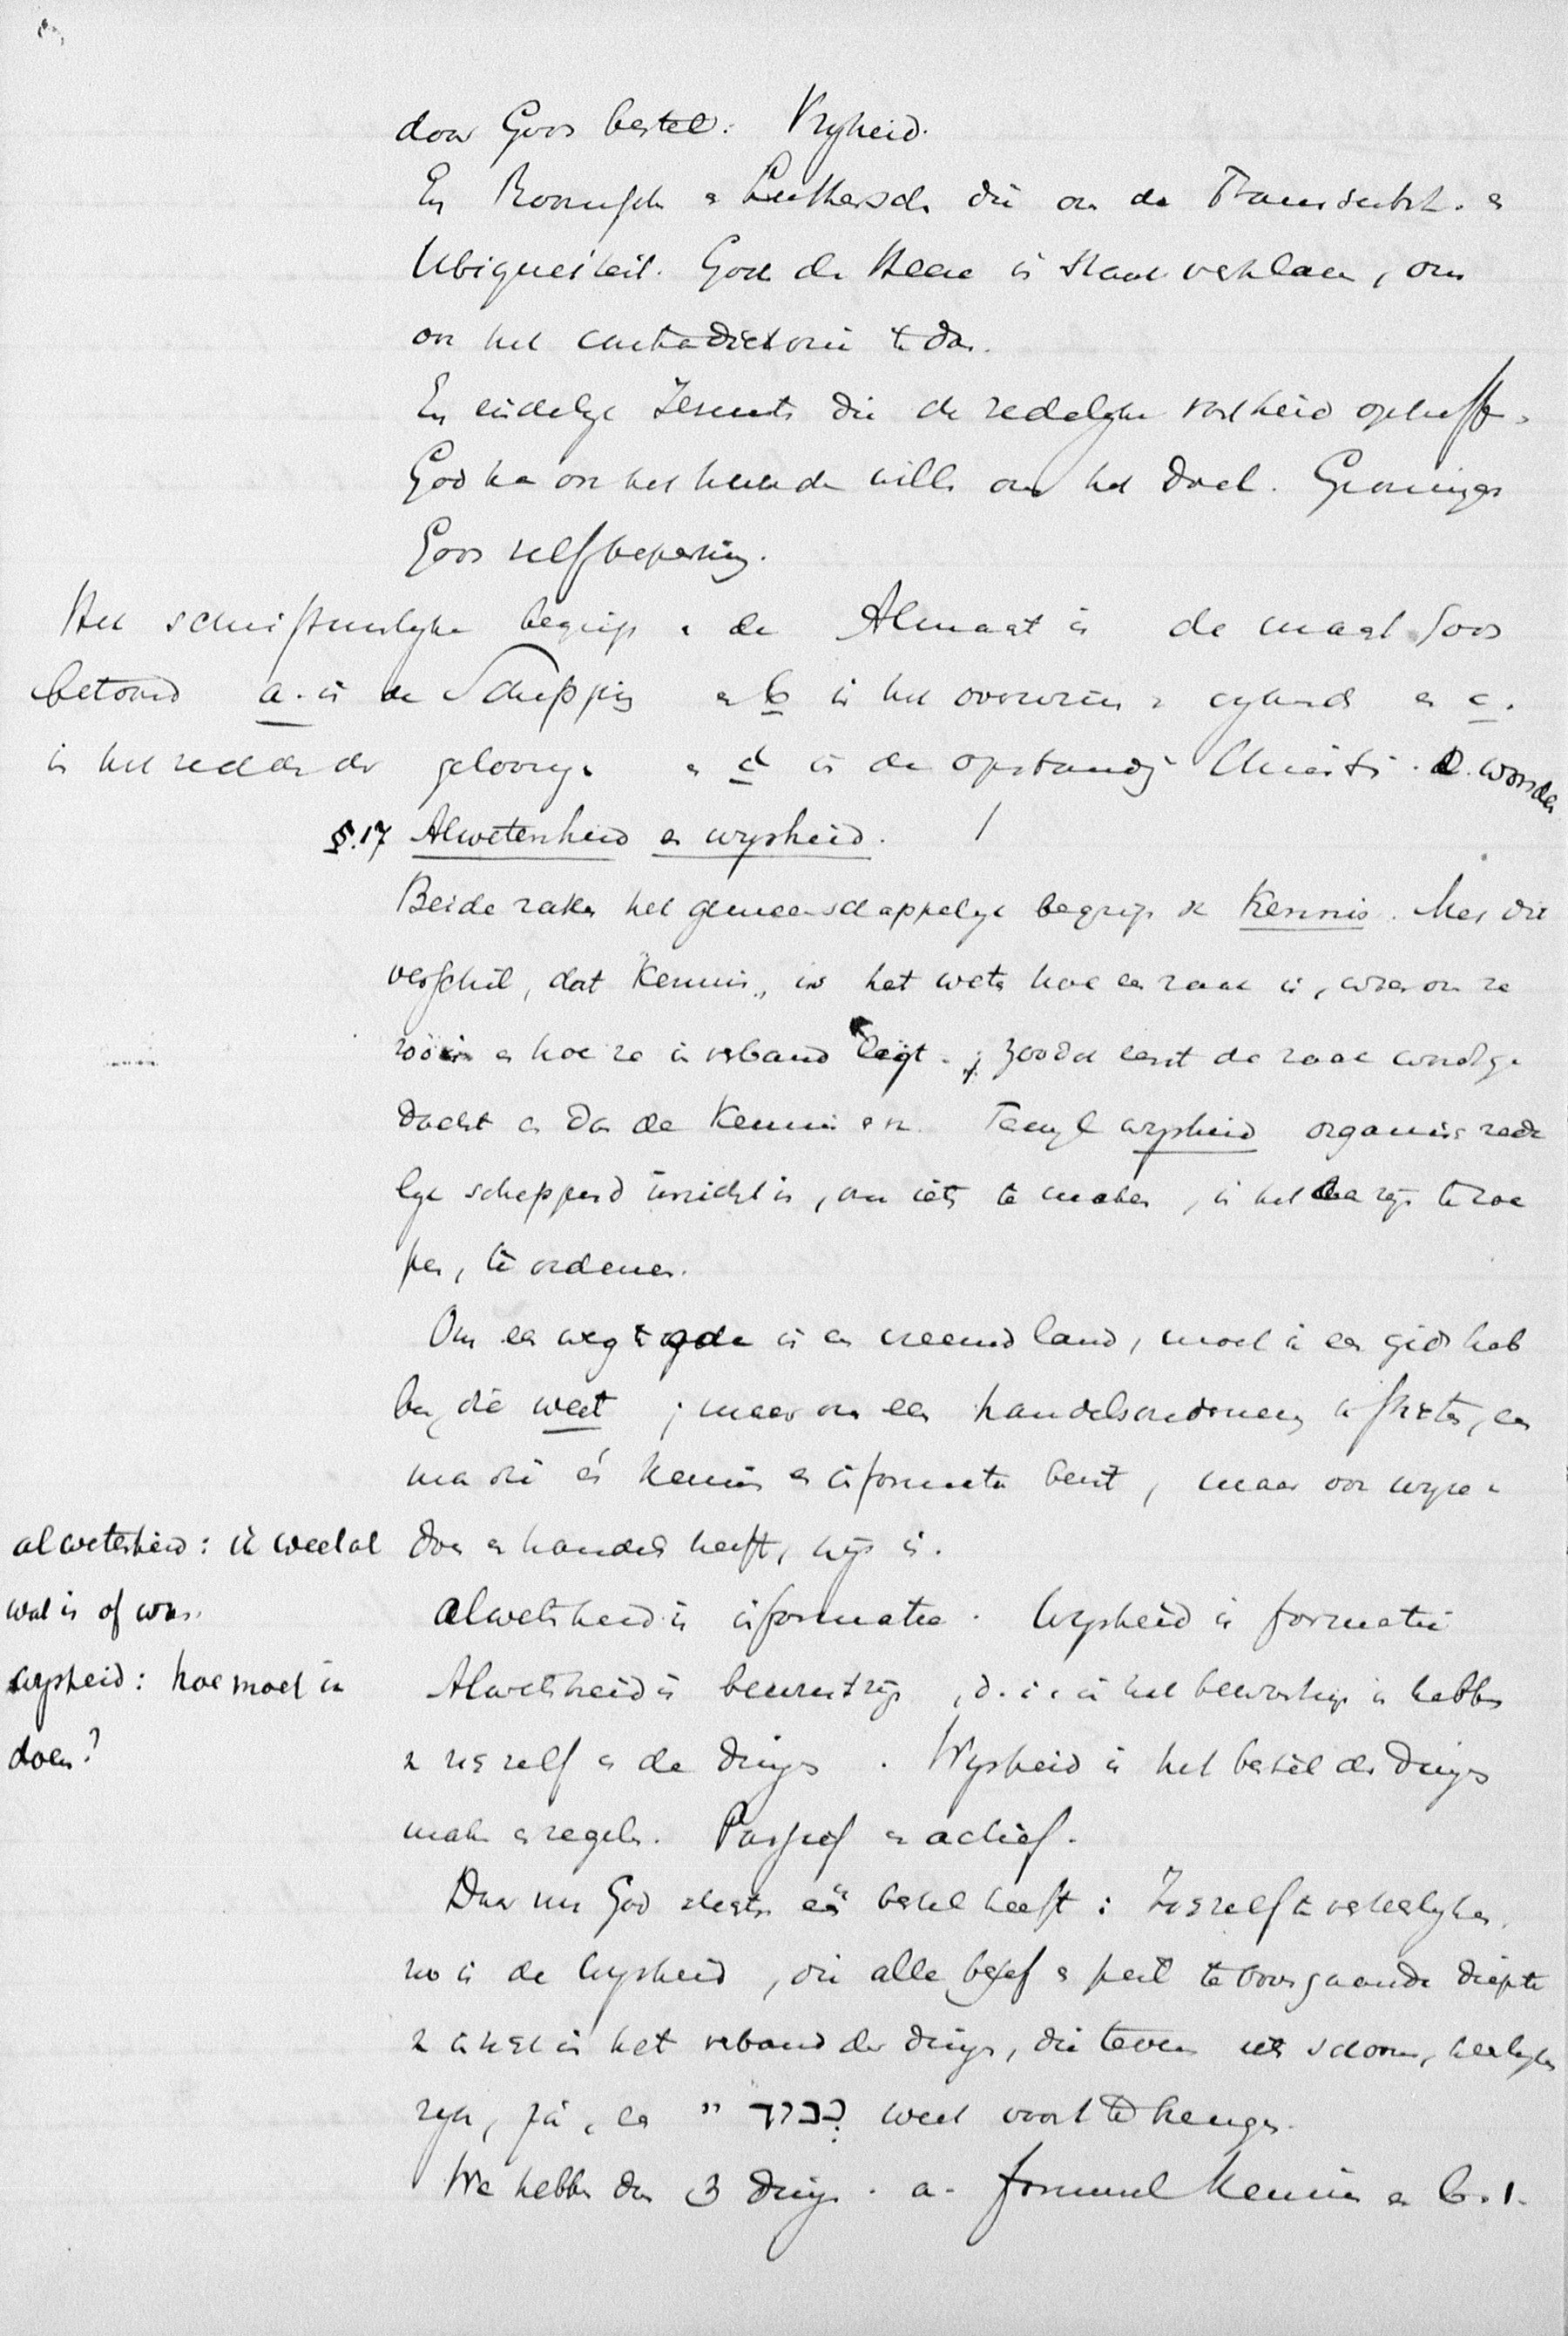 door Gods bestel: Vrijheid.
En Roomsch & Luthersch die om de Transsubst. &
Ubiquiteit. God de Heere in staat verklaren, om
ook het contradictorie te doen.
En eindelijk Jesuits die de redelijke vastheid opheffen,
God kan ook het kwade willen om het doel. Groninger
Gods zelfbeperking.
Het schriftuurlijke begrip v. de Almacht is de macht Gods
betoond a. in de Schepping & b in het overwinnen v. vijand & c.
in het redden der geloovigen & d in de opstanding Christi. e. wonder
§.17 Alwetenheid en wijsheid.
Beide raken het gemeenschappelijk begrip v. Kennis. Met dit
verschil, dat Kennis, is het weten hoe een zaak is, waarom ze
zóó is & hoe ze in verband ligt; zoodat eerst de zaak
dacht & dan de Kennis er v. Terwijl wijsheid organisc rede
lijk scheppend inzicht is, om iets te maken, in het aanzijn te roe
pen, te ordenen.
Om een weg te gaan in een vreemd land, moet ik een gids heb
ben, die weet; maar om een handelsonderneming, een
man die én kennis & informatie bezit, maar ook wijze v.
alwetenheid: ik weet al
doen & handel heeft, wijs is.
wat is of was.
Alwetenheid is informatie. Wijsheid is formatie
wijsheid: hoe moet ik
Alwetenheid is bewustzijn, d. i. in het bewustzijn in hebben
doen?
v. zich zelf & de dingen. Wijsheid is het bestel der dingen
maken & regelen. Passief & actief.
Daar nu God slechts één bestel heeft: Zichzelf te verheerlijken,
zoo is de Wijsheid, die alle besef & peil te boven gaande diepte
v. inzicht in het verband der dingen, die tevens uit schoon, heerlijk
zijn, ja, een כבוד יי weet voort te brengen.
We hebben dus 3 dingen. a. formeel Kennis & b. 1.